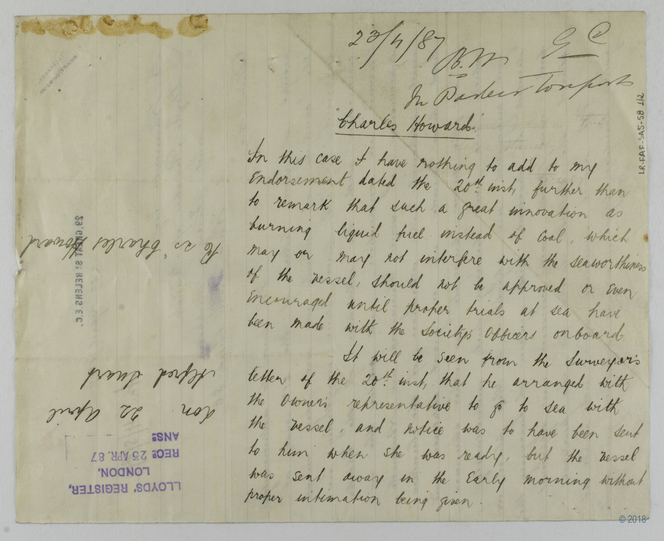 23/4/87
"Charles Howard"
In this case I have nothing to add to my
Endorsement dated the 20th inst, further than
to remark that such a great innovation as
burning liquid fuel instead of Coal, which
may or may not interfere with the seaworthiness
of the vessel, should not be approved or even
encouraged until proper trials at sea have
been made with the Society's Officers onboard
It will be seen from the Surveyor's
letter of the 20th inst, that he arranged with
the Owner's representative to go to sea with
the vessel, and notice was to have been sent
to him when she was ready, but the vessel
was sent away in the Early morning without
proper intimation being given.
LR-FAF-SAS-58-112
Re ss "Charles Howard"
Lon 22 April
LLOYDS' REGISTER,
LONDON.
RECD 25 APR. 87
ANSD
© 2018